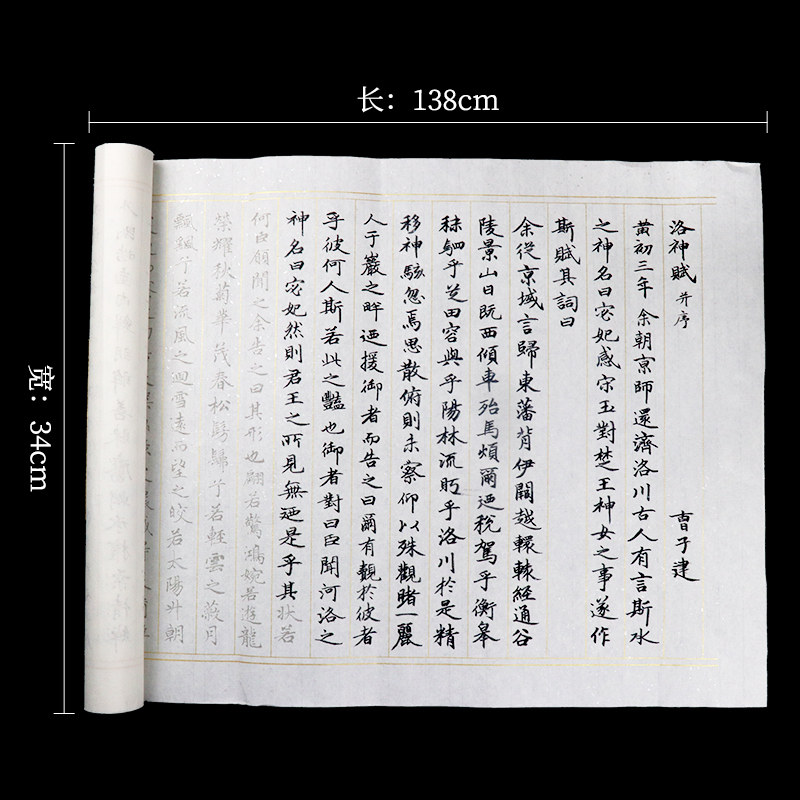 长：138cm
宽：34cm
洛神賦 并序 曹子建
黃初三年 余朝京師還濟洛川古人有言斯水
之神名曰宓妃感宋玉對楚王神女之事遂作
斯賦其詞曰
余從京域言歸東藩背伊闕越轘轅經通谷
陵景山日既西傾車殆馬煩爾迺稅駕乎衡皋
秣駟乎芝田容與乎陽林流眄乎洛川於是精
移神駭忽焉思散俯則未察仰以殊觀睹一麗
人于巖之畔迺援御者而告之曰爾有覿於彼者
乎彼何人斯若此之豔也御者對曰臣聞河洛之
神名曰宓妃然則君王之所見無迺是乎其狀若
何臣願聞之余告之曰其形也翩若驚鴻婉若遊龍
榮耀秋菊華茂春松髣髴兮若輕雲之蔽月
飄飖兮若流風之迴雪遠而望之皎若太陽升朝